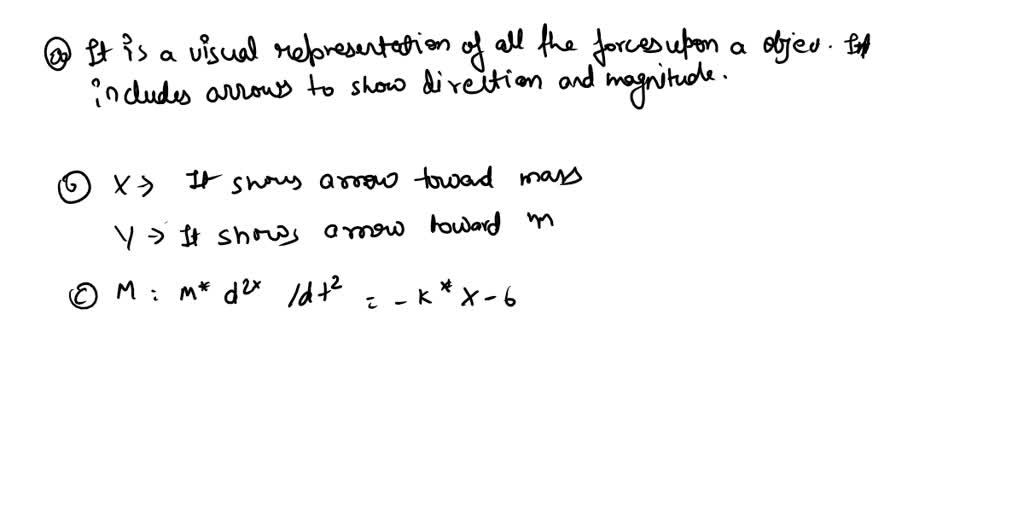 (a) It is a visual representation of all the forces upon a objec. It
includes arrows to show direction and magnitude.
(b) X → It shows arrow toward mass
Y → It shows arrow toward m
(c) M : m* d2x /dt2 = -k* x - 6